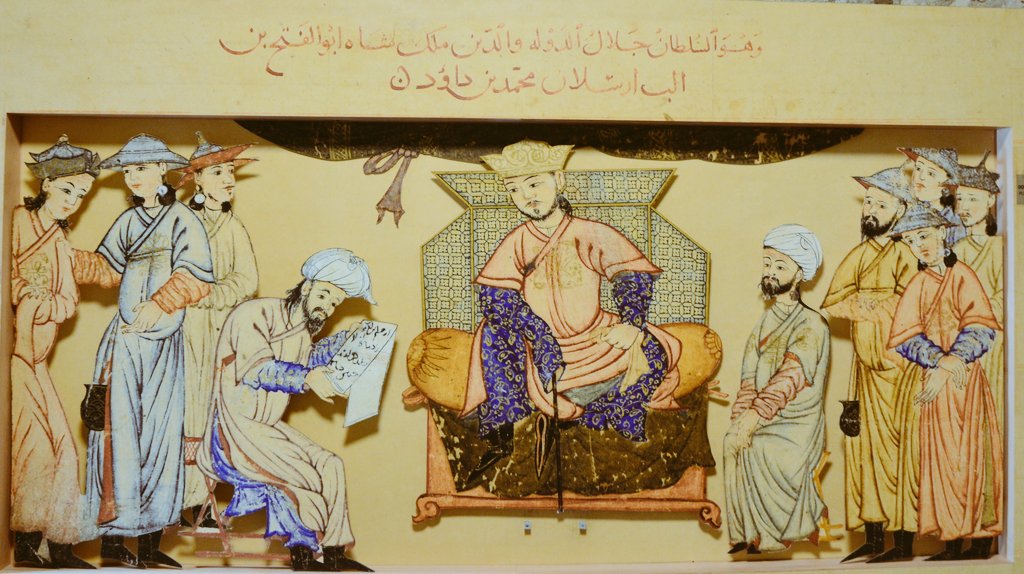 وهو السلطان جلال الدوله والدين ملك شاه ابو الفتح بن
الب ارسلان محمد بن داود